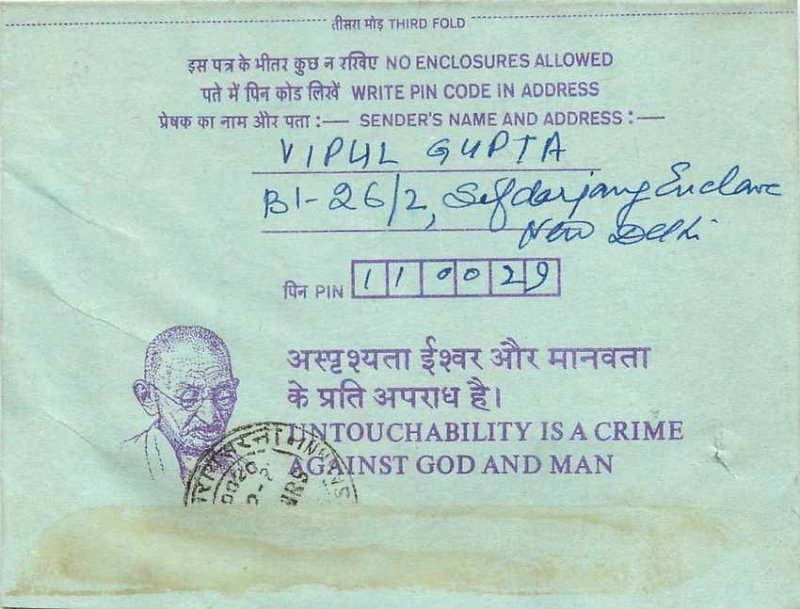 तीसरा मोड़ THIRD FOLD
इस पत्र के भीतर कुछ न रखिए NO ENCLOSURES ALLOWED
पते में पिन कोड लिखें WRITE PIN CODE IN ADDRESS
प्रेषक का नाम और पता :— SENDER'S NAME AND ADDRESS :—
VIPUL GUPTA
B1-26/2, Safdarjang Enclave
New Delhi
पिन PIN 110029
अस्पृश्यता ईश्वर और मानवता
के प्रति अपराध है।
UNTOUCHABILITY IS A CRIME
AGAINST GOD AND MAN